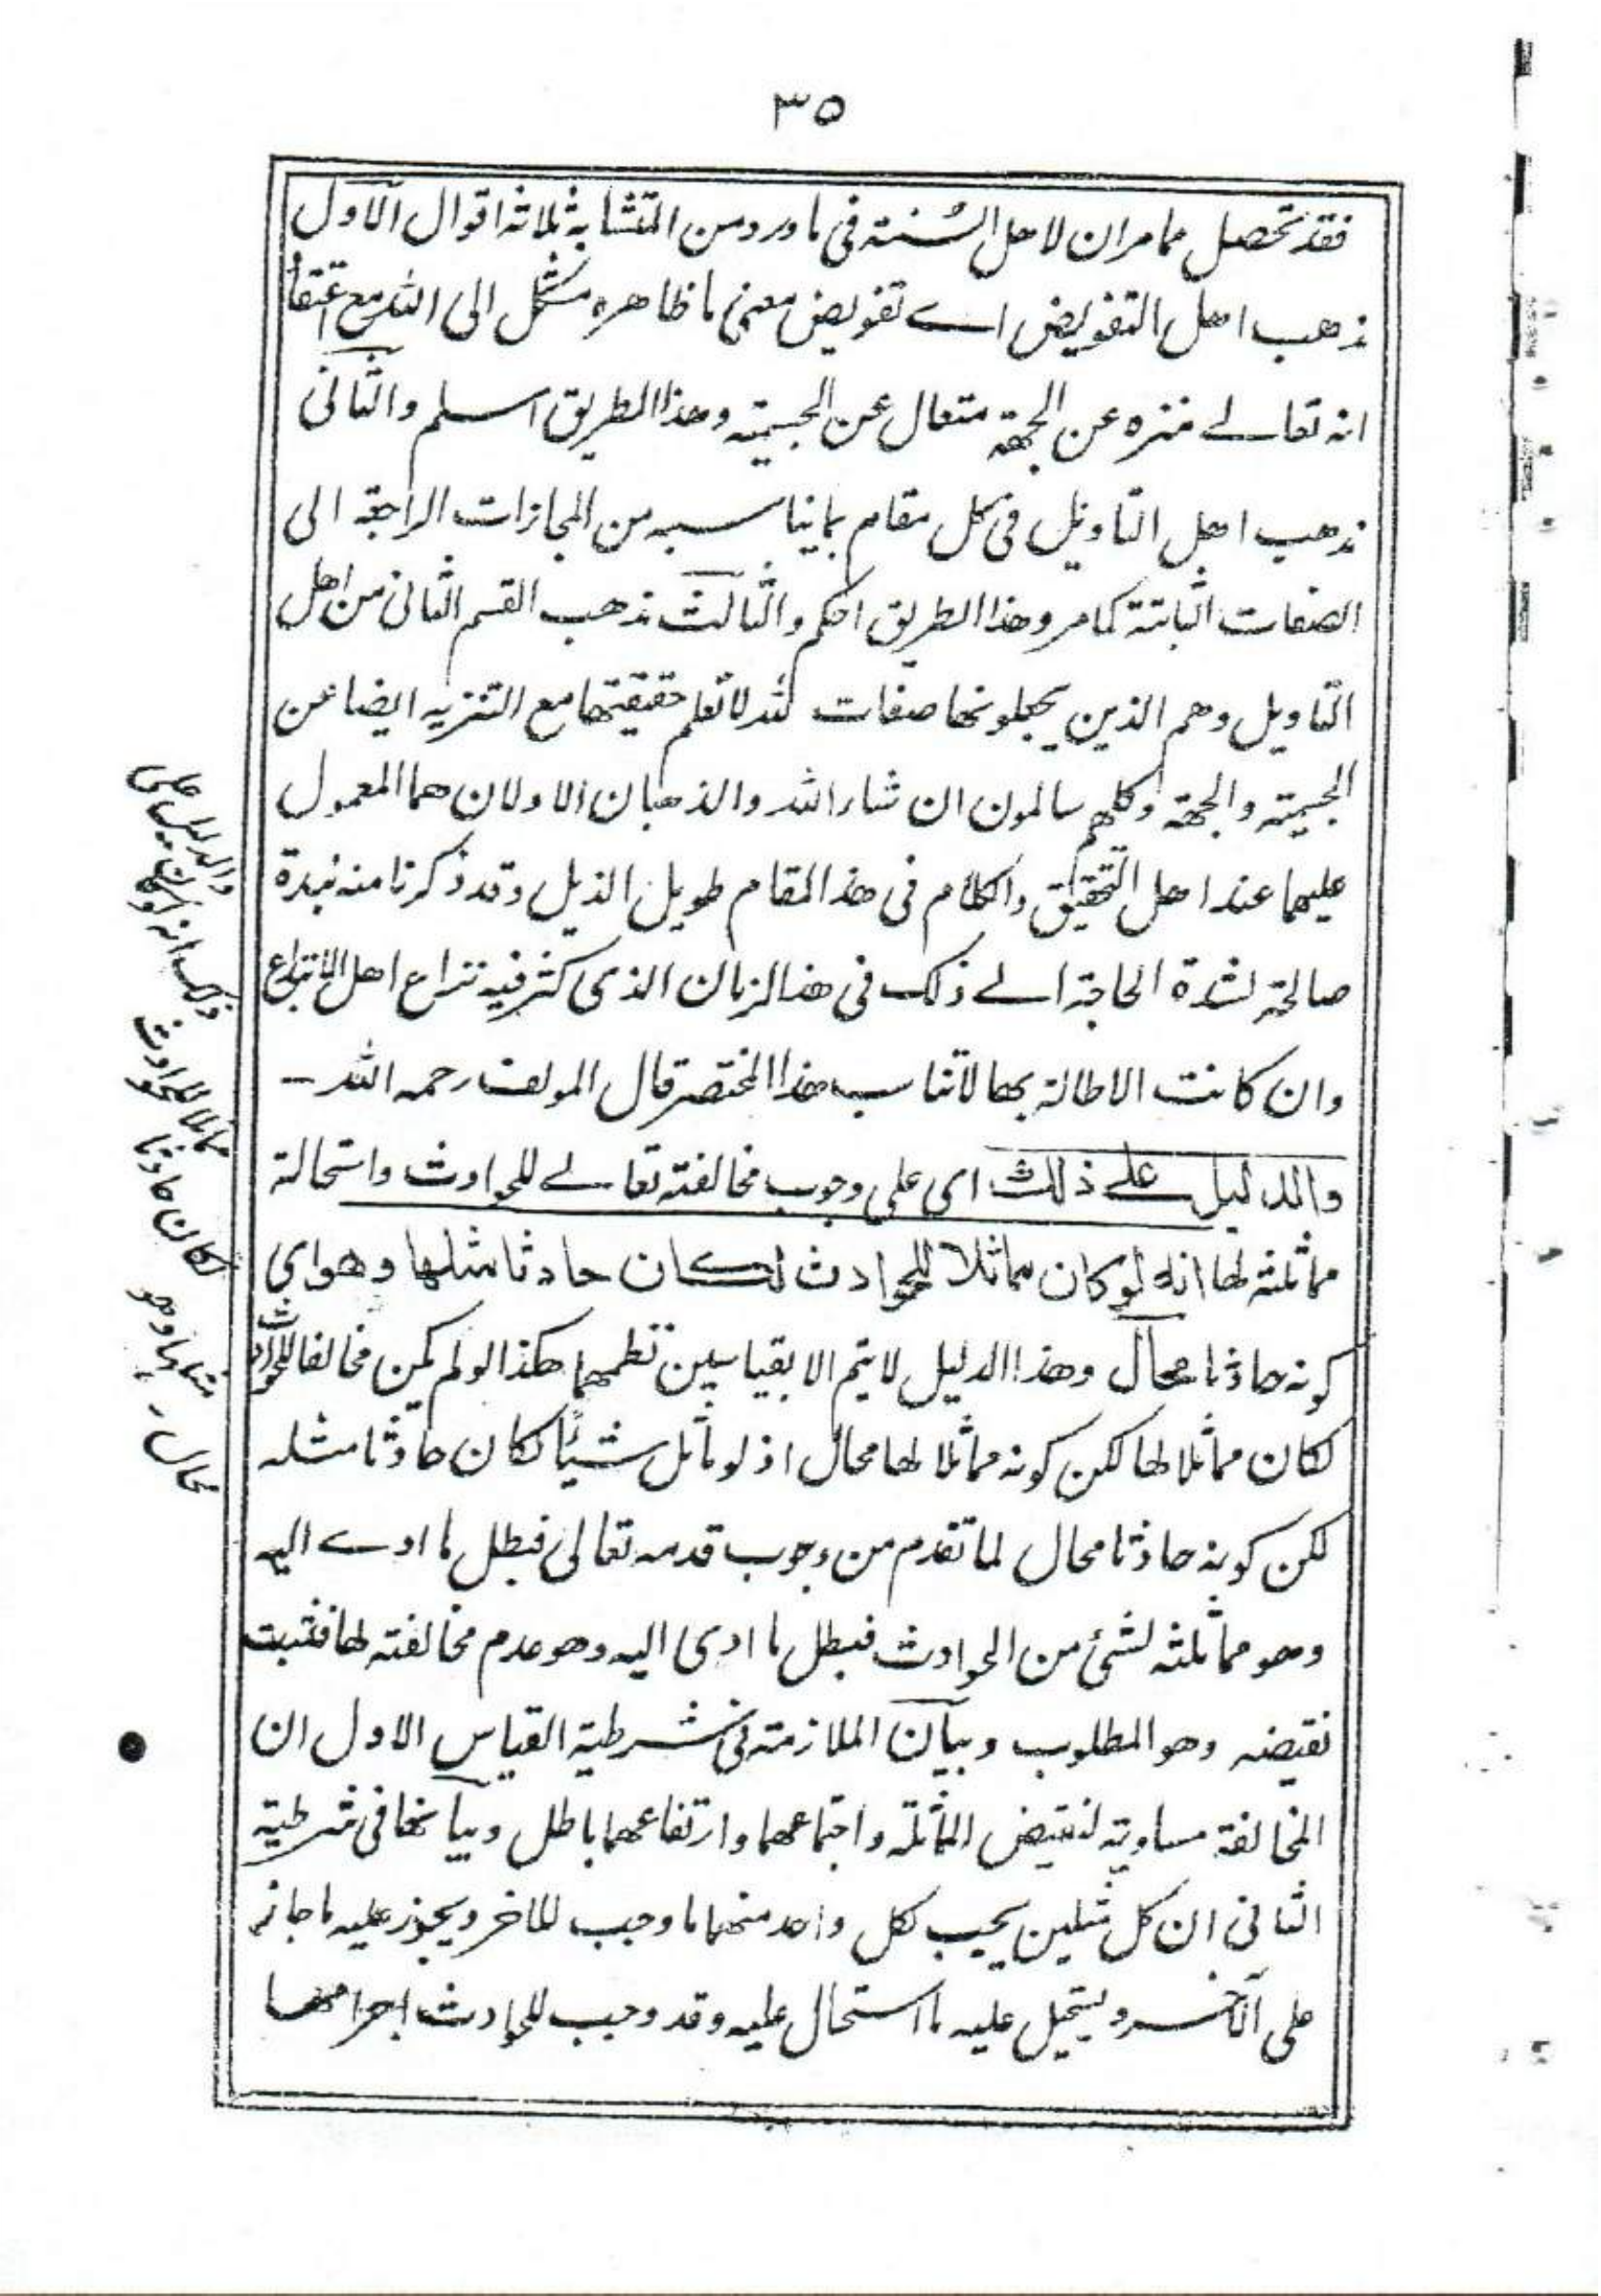 ٣٥
فقد تحصل مما مر ان لاهل السنة فى ما ورد من المتشابه ثلاثة اقوال الاول
مذهب اهل التفويض اے تفويض معنى ما ظاهره مشكل الى الله مع اعتقاد
انه تعالے منزه عن الجهة متعال عن الجسمية وهذا الطريق اسلم والثانى
مذهب اهل التاويل فى كل مقام بما يناسبه من المجازات الراجعة الى
الصفات الثابتة كما مر وهذا الطريق احكم والثالث مذهب القسم الثانى من اهل
التاويل وهم الذين يجعلونها صفات لله لا تعلم حقيقتها مع التنزيه ايضا عن
الجسمية والجهة وكلهم سالمون ان شاء الله والمذهبان الاولان هما المعمول
عليهما عند اهل التحقيق والكلام فى هذا المقام طويل الذيل وقد ذكرنا منه نبذة
صالحة لشدة الحاجة الے ذلك فى هذا الزمان الذى كثر فيه نزاع اهل الابتداع
وان كانت الاطالة بها لا تناسب هذا المختصر قال المولف رحمه الله ــ
والدليل علے ذلك اى على وجوب مخالفته تعالے للحوادث واستحالة
مماثلته لها انه لو كان مماثلا للحوادث لكان حادثا مثلها وهو اى
كونه حادثا محال وهذا الدليل لا يتم الا بقياسين نظمهما هكذا لو لم يكن مخالفا للحوادث
لكان مماثلا لها لكن كونه مماثلا لها محال اذ لو ماثل شيئا لكان حادثا مثله
لكن كونه حادثا محال لما تقدم من وجوب قدمه تعالى فبطل ما ادے اليه
وهو مماثلته لشئ من الحوادث فبطل ما ادى اليه وهو عدم مخالفته لها فثبت
نقيضه وهو المطلوب وبيان الملازمة فى شرطية القياس الاول ان
المخالفة مساوية لنقيض المماثلة واجتماعهما وارتفاعهما باطل وبيانها فى شرطية
الثانى ان كل مثلين يجب لكل واحد منهما ما وجب للاخر ويجوز عليه ما جاز
على الآخر ويستحيل عليه ما استحال عليه وقد وجب للحوادث اجرامها
والدليل على
ذلك انه لو كان
مماثلا للحوادث
لكان حادثا
مثلها وهو
محال